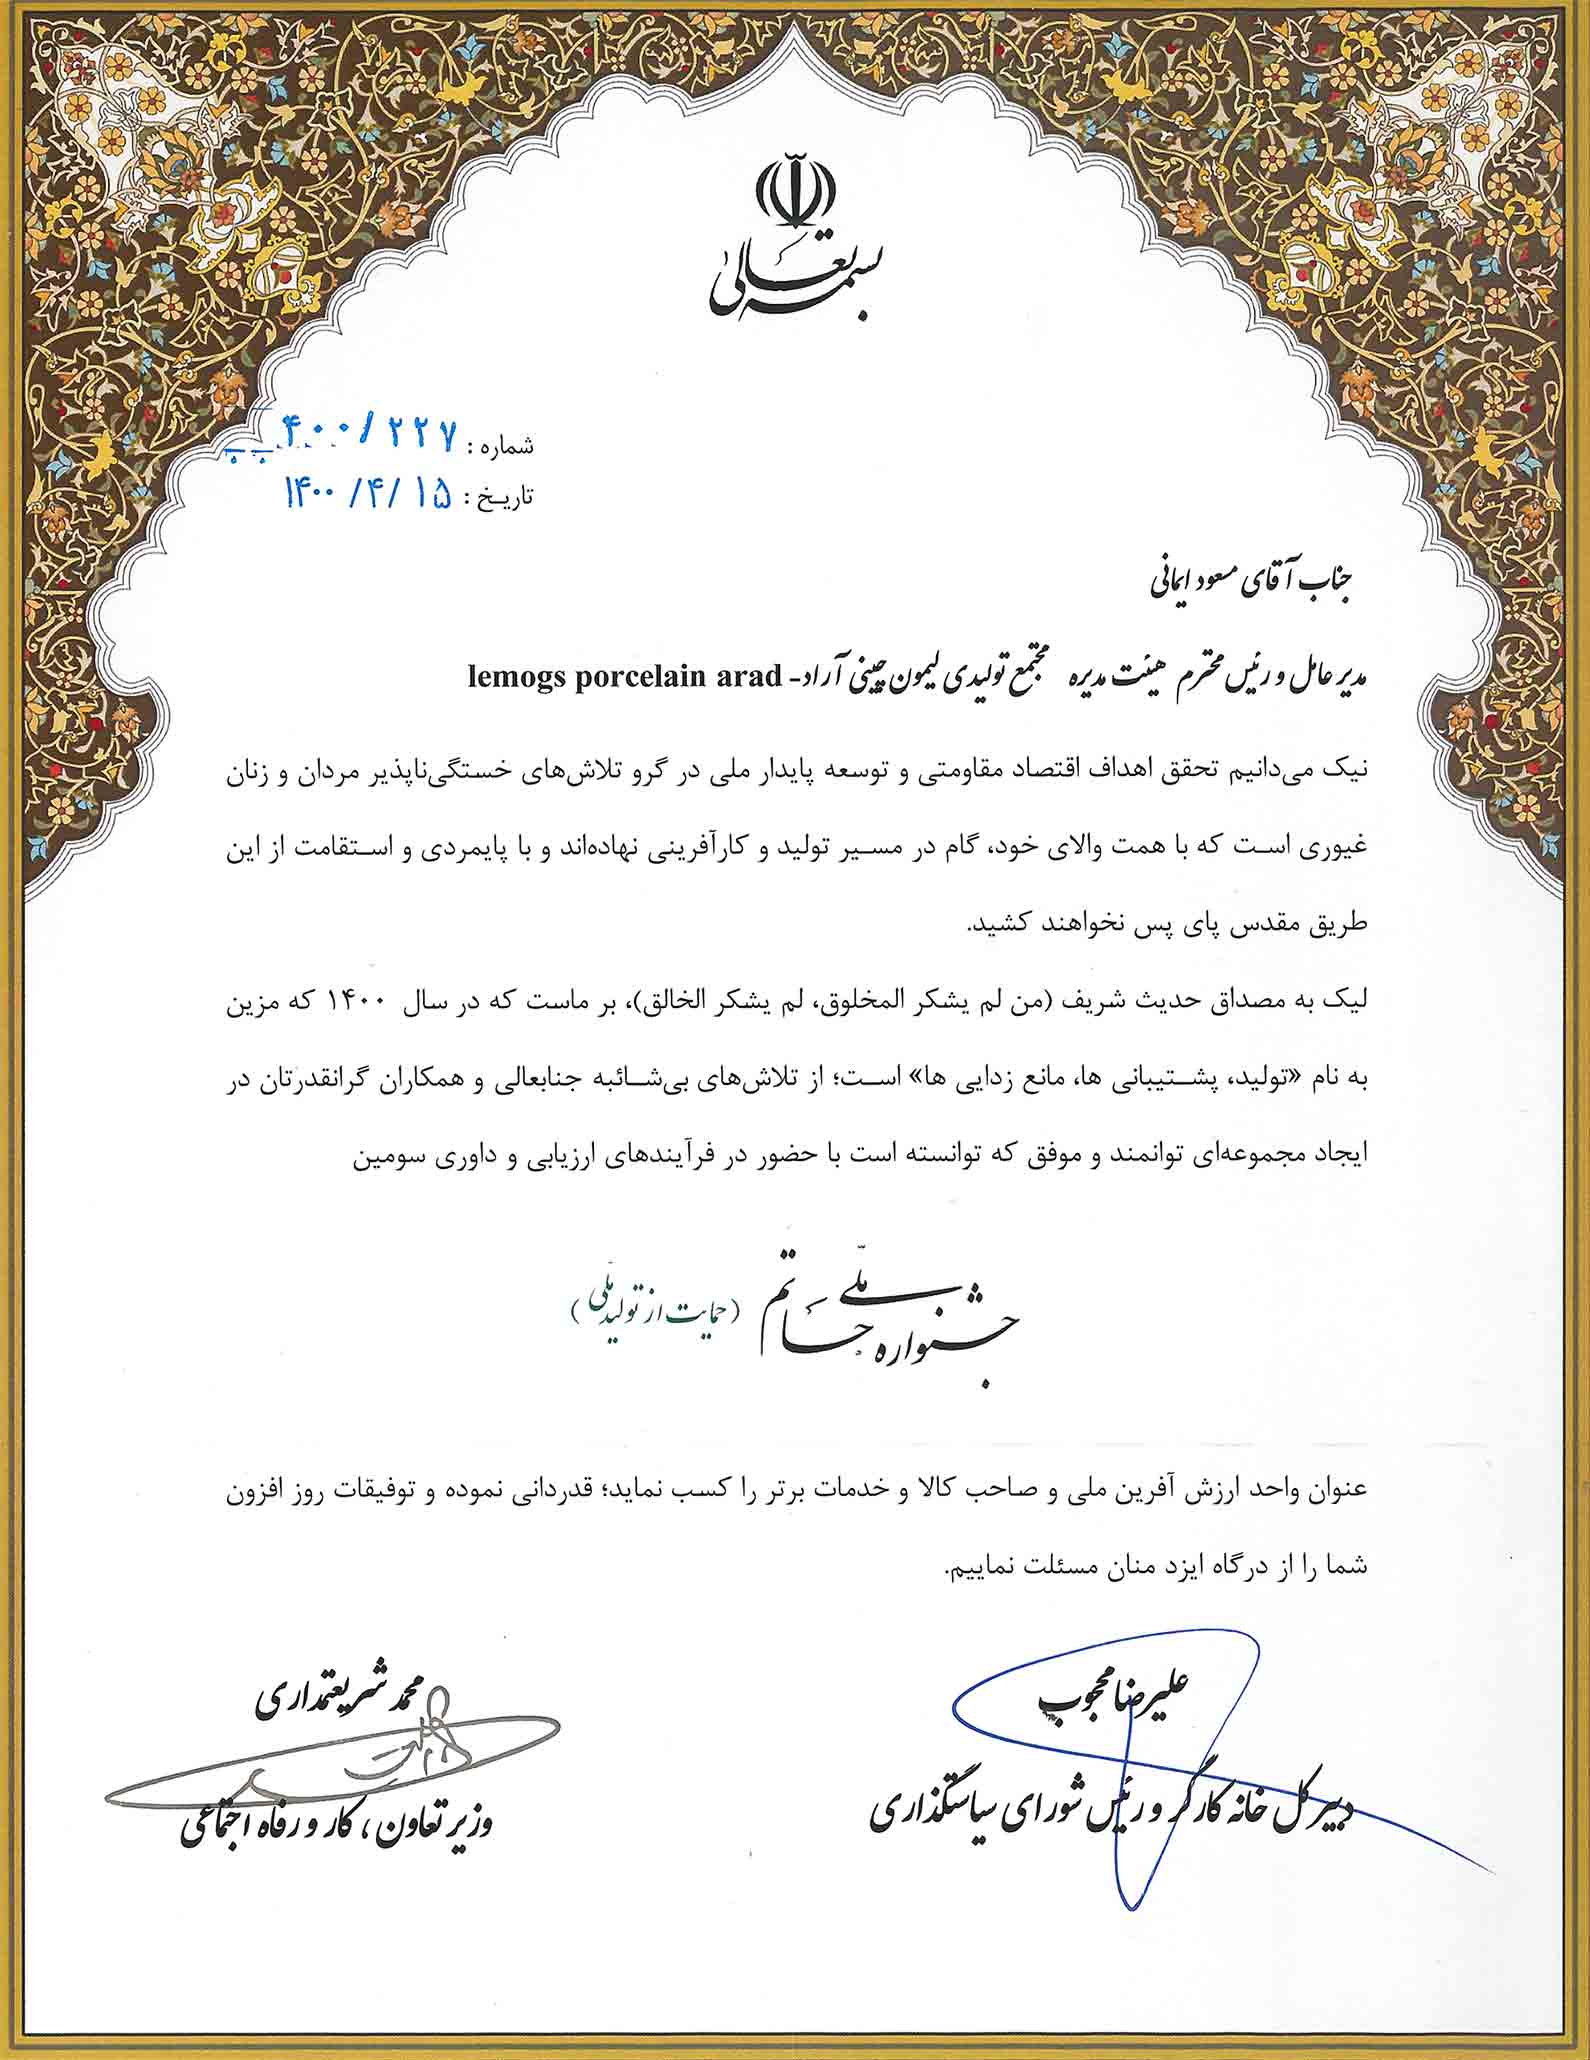 بسمه تعالی
شماره : ۴۰۰/۲۲۷
تاریخ : ۱۴۰۰/۴/۱۵
جناب آقای مسعود ایمانی
مدیرعامل و رئیس محترم هیئت مدیره مجتمع تولیدی لیمون چینی آراد- lemogs porcelain arad
نیک می‌دانیم تحقق اهداف اقتصاد مقاومتی و توسعه پایدار ملی در گرو تلاش‌های خستگی‌ناپذیر مردان و زنان
غیوری است که با همت والای خود، گام در مسیر تولید و کارآفرینی نهاده‌اند و با پایمردی و استقامت از این
طریق مقدس پای پس نخواهند کشید.
لیک به مصداق حدیث شریف (من لم یشکر المخلوق، لم یشکر الخالق)، بر ماست که در سال ۱۴۰۰ که مزین
به نام «تولید، پشتیبانی ها، مانع زدایی ها» است؛ از تلاش‌های بی‌شائبه جنابعالی و همکاران گرانقدرتان در
ایجاد مجموعه‌ای توانمند و موفق که توانسته است با حضور در فرآیندهای ارزیابی و داوری سومین
جشنواره ملّی حاتم (حمایت از تولید ملّی)
عنوان واحد ارزش آفرین ملی و صاحب کالا و خدمات برتر را کسب نماید؛ قدردانی نموده و توفیقات روز افزون
شما را از درگاه ایزد منان مسئلت نماییم.
علیرضا محجوب
دبیرکل خانه کارگر و رئیس شورای سیاستگذاری
محمد شریعتمداری
وزیر تعاون، کار و رفاه اجتماعی